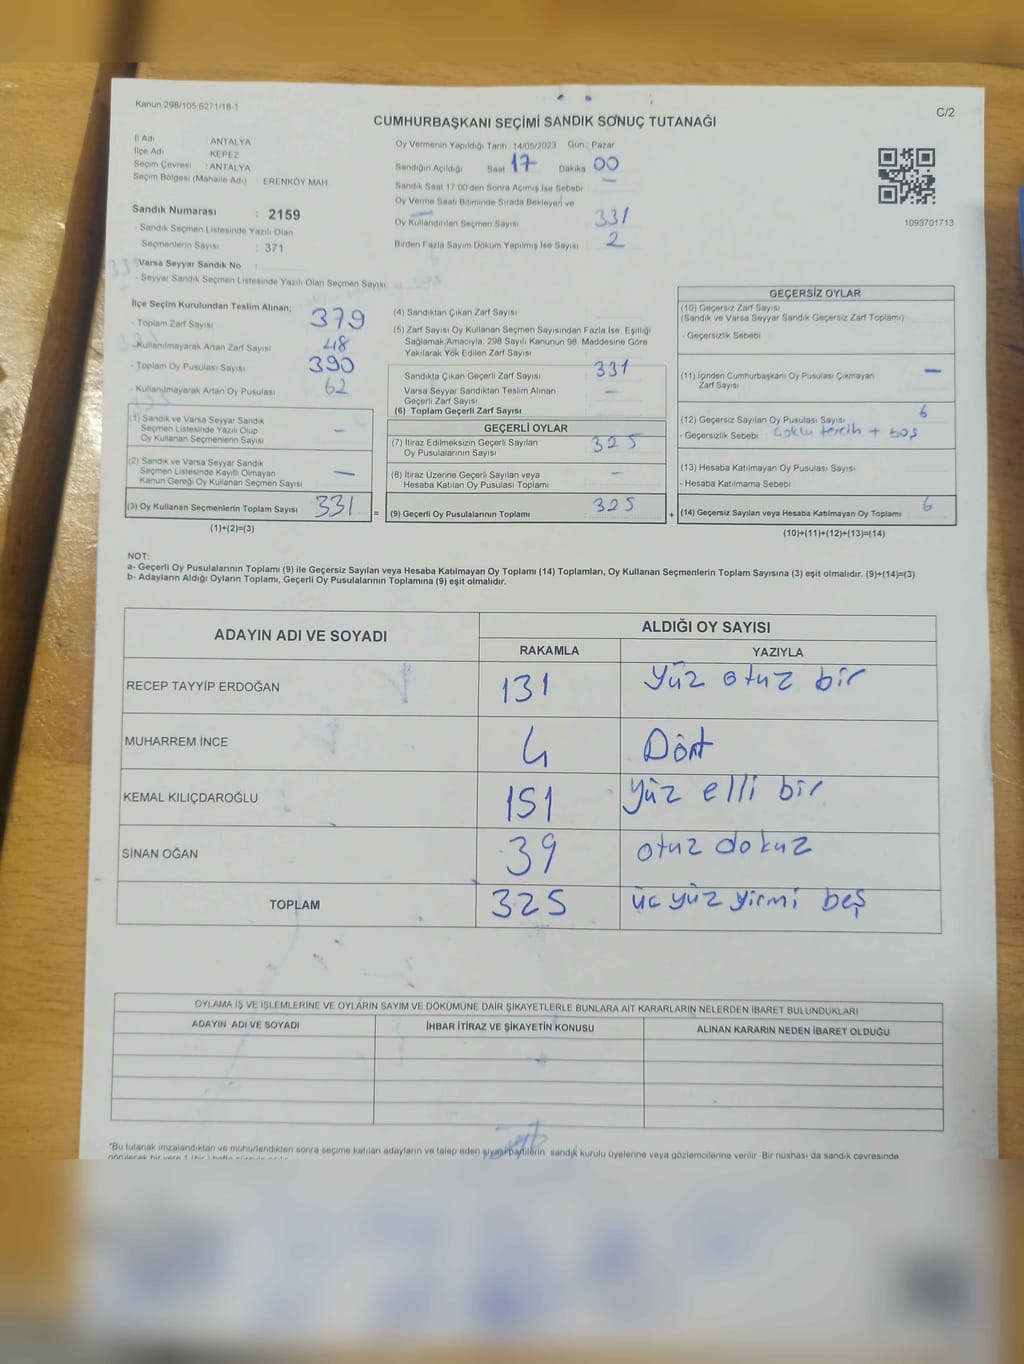 Kanun:298/105;6271/18-1
C/2
CUMHURBAŞKANI SEÇİMİ SANDIK SONUÇ TUTANAĞI
İl Adı ANTALYA
İlçe Adı KEPEZ
Seçim Çevresi : ANTALYA
Seçim Bölgesi (Mahalle Adı) ERENKÖY MAH.
Sandık Numarası : 2159
- Sandık Seçmen Listesinde Yazılı Olan
Seçmenlerin Sayısı : 371
Varsa Seyyar Sandık No :
- Seyyar Sandık Seçmen Listesinde Yazılı Olan Seçmen Sayısı:
Oy Vermenin Yapıldığı Tarih 14/05/2023 Gün: Pazar
Sandığın Açıldığı Saat 17 Dakika 00
Sandık Saat 17:00'den Sonra Açılmış İse Sebebi —
Oy Verme Saati Bitiminde Sırada Bekleyen ve
Oy Kullandırılan Seçmen Sayısı 331
Birden Fazla Sayım Döküm Yapılmış İse Sayısı 2
1093701713
İlçe Seçim Kurulundan Teslim Alınan;
- Toplam Zarf Sayısı 379
- Kullanılmayarak Artan Zarf Sayısı 48
- Toplam Oy Pusulası Sayısı 390
- Kullanılmayarak Artan Oy Pusulası 62
(1) Sandık ve Varsa Seyyar Sandık
Seçmen Listesinde Yazılı Olup
Oy Kullanan Seçmenlerin Sayısı —
(2) Sandık ve Varsa Seyyar Sandık
Seçmen Listesinde Kayıtlı Olmayan
Kanun Gereği Oy Kullanan Seçmen Sayısı —
(3) Oy Kullanan Seçmenlerin Toplam Sayısı 331 =
(1)+(2)=(3)
(4) Sandıktan Çıkan Zarf Sayısı
(5) Zarf Sayısı Oy Kullanan Seçmen Sayısından Fazla İse, Eşitliği
Sağlamak Amacıyla, 298 Sayılı Kanunun 98. Maddesine Göre
Yakılarak Yok Edilen Zarf Sayısı
Sandıkta Çıkan Geçerli Zarf Sayısı 331
Varsa Seyyar Sandıktan Teslim Alınan
Geçerli Zarf Sayısı —
(6) Toplam Geçerli Zarf Sayısı
GEÇERLİ OYLAR
(7) İtiraz Edilmeksizin Geçerli Sayılan
Oy Pusulalarının Sayısı 325
(8) İtiraz Üzerine Geçerli Sayılan veya
Hesaba Katılan Oy Pusulası Toplamı —
(9) Geçerli Oy Pusulalarının Toplamı 325 +
GEÇERSİZ OYLAR
(10) Geçersiz Zarf Sayısı
(Sandık ve Varsa Seyyar Sandık Geçersiz Zarf Toplamı)
- Geçersizlik Sebebi
(11) İçinden Cumhurbaşkanı Oy Pusulası Çıkmayan
Zarf Sayısı —
(12) Geçersiz Sayılan Oy Pusulası Sayısı 6
- Geçersizlik Sebebi çoklu tercih + boş
(13) Hesaba Katılmayan Oy Pusulası Sayısı
- Hesaba Katılmama Sebebi
(14) Geçersiz Sayılan veya Hesaba Katılmayan Oy Toplamı 6
(10)+(11)+(12)+(13)=(14)
NOT:
a- Geçerli Oy Pusulalarının Toplamı (9) ile Geçersiz Sayılan veya Hesaba Katılmayan Oy Toplamı (14) Toplamları, Oy Kullanan Seçmenlerin Toplam Sayısına (3) eşit olmalıdır. (9)+(14)=(3)
b- Adayların Aldığı Oyların Toplamı, Geçerli Oy Pusulalarının Toplamına (9) eşit olmalıdır.
ADAYIN ADI VE SOYADI ALDIĞI OY SAYISI
RAKAMLA YAZIYLA
RECEP TAYYİP ERDOĞAN 131 Yüz otuz bir
MUHARREM İNCE 4 Dört
KEMAL KILIÇDAROĞLU 151 Yüz elli bir
SİNAN OĞAN 39 otuz dokuz
TOPLAM 325 üç yüz yirmi beş
OYLAMA İŞ VE İŞLEMLERİNE VE OYLARIN SAYIM VE DÖKÜMÜNE DAİR ŞİKAYETLERLE BUNLARA AİT KARARLARIN NELERDEN İBARET BULUNDUKLARI
ADAYIN ADI VE SOYADI İHBAR İTİRAZ VE ŞİKAYETİN KONUSU ALINAN KARARIN NEDEN İBARET OLDUĞU
*Bu tutanak imzalandıktan ve mühürlendikten sonra seçime katılan adayların ve talep eden siyasi partilerin sandık kurulu üyelerine veya gözlemcilerine verilir. Bir nüshası da sandık çevresinde